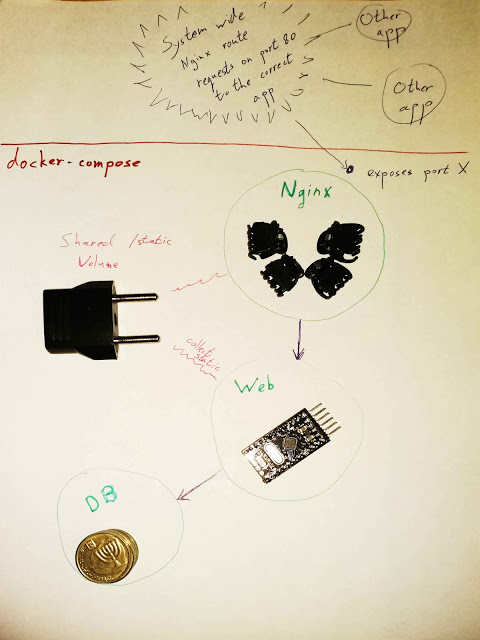 System wide
Nginx route
requests on port 80
to the correct
app
Other
app
Other
app
docker-compose
exposes port X
Nginx
Shared /static
Volume
collect
static
Web
DB